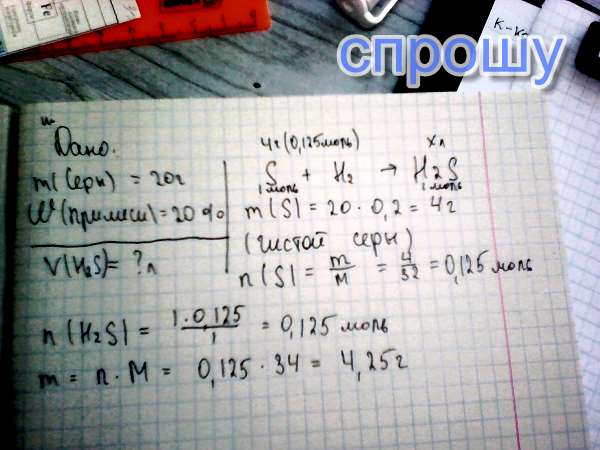 спрошу
Дано.
m(серы) = 20г
W(примиси) = 20%
V(H2S) = ? л
4г (0,125моль) xл
S + H2 → H2S
1моль 1моль
m(S) = 20 · 0,2 = 4г
(чистой серы)
n(S) = m/M = 4/32 = 0,125 моль
n(H2S) = 1·0,125/1 = 0,125 моль
m = n · M = 0,125 · 34 = 4,25г